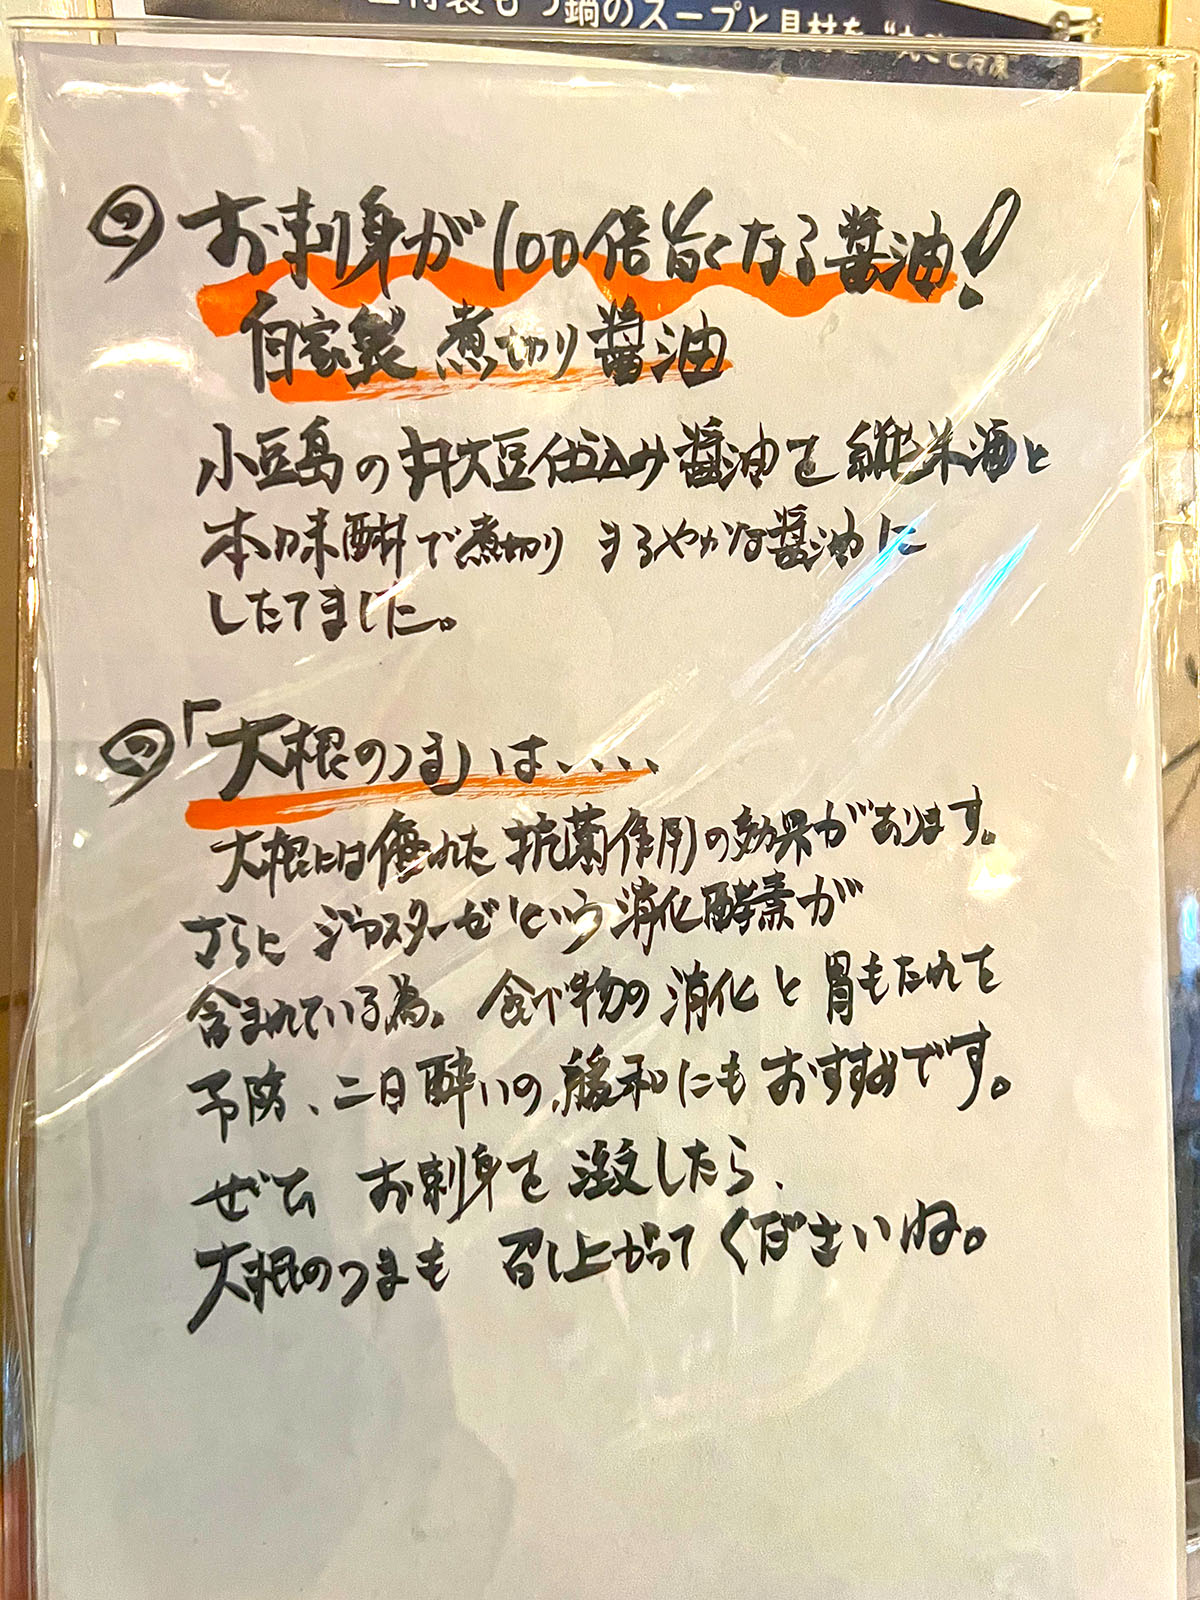 もつ鍋のスープと具材を
お刺身が100倍旨くなる醤油!
自家製 煮切り醤油
小豆島の丼大豆仕込み醤油を純米酒と
本味醂で煮切り まろやかな醤油に
したてました。
「大根のつま」は、、、、
大根には優れた抗菌作用の効果があります。
さらに ジアスターゼという消化酵素が
含まれている為、食べ物の消化と胃もたれを
予防、二日酔いの緩和にもおすすめです。
ぜひ お刺身を注文したら、
大根のつまも 召し上がってくださいね。